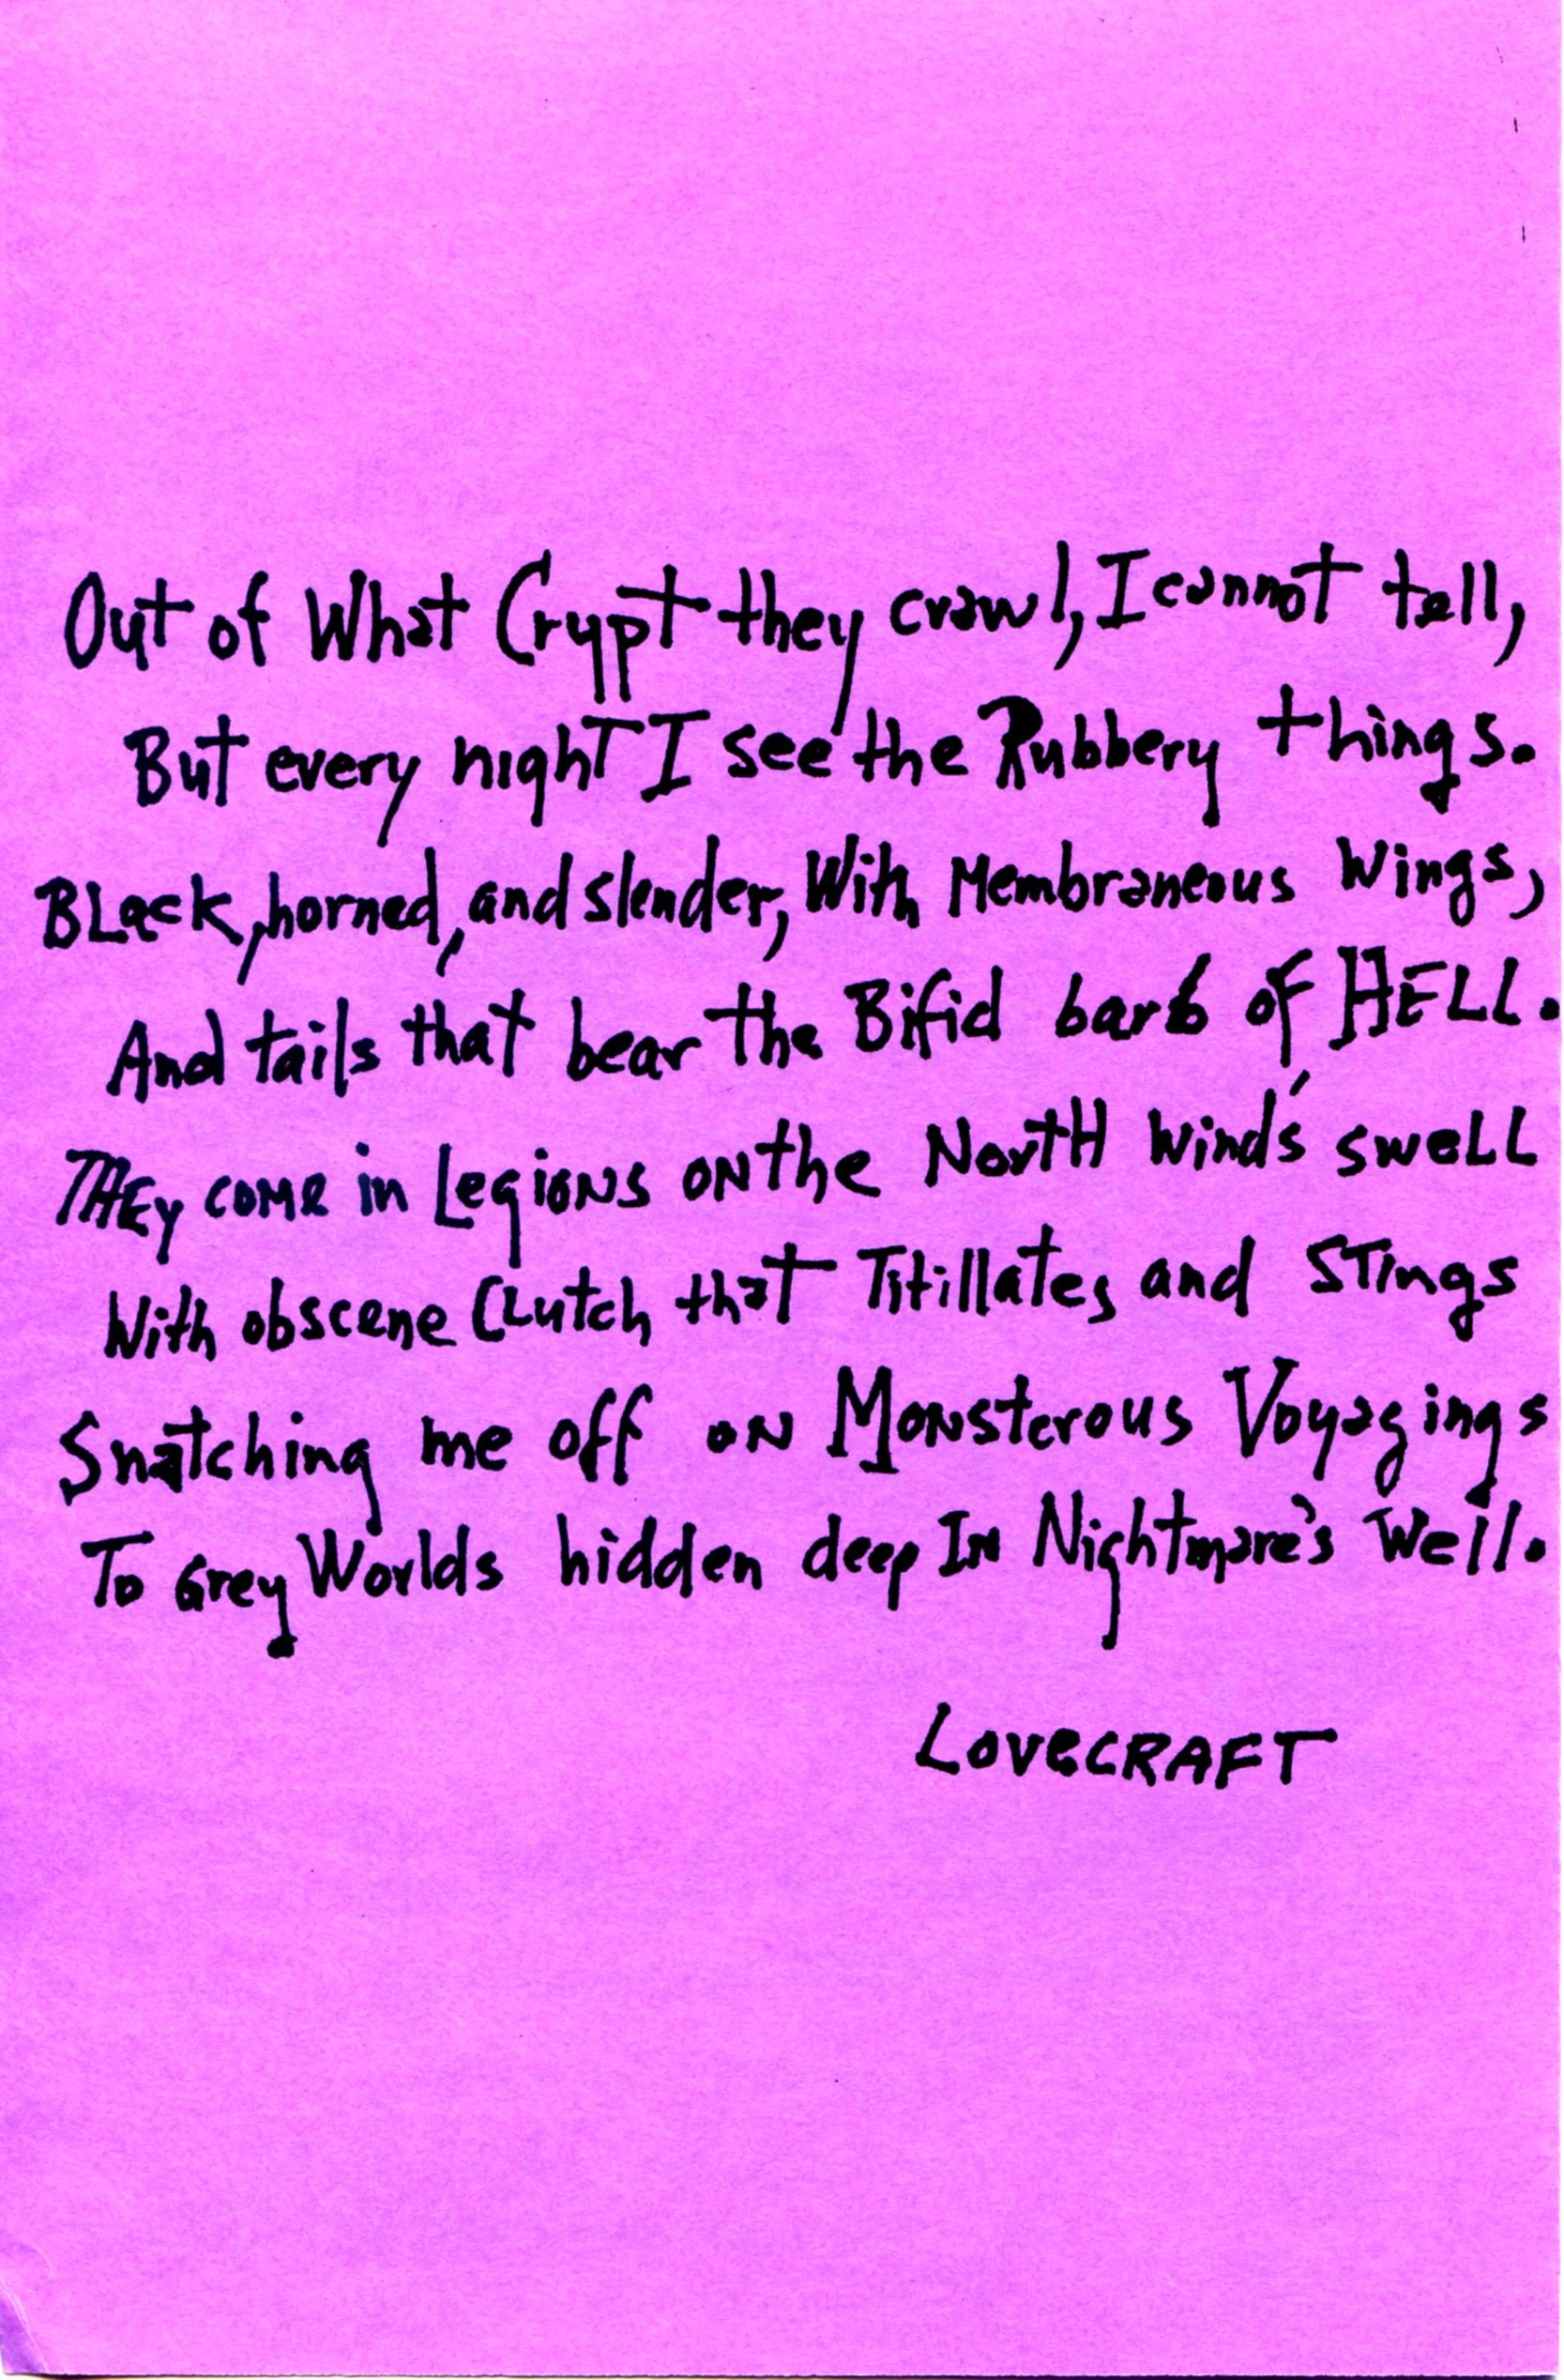 Out of What Crypt they crawl, I cannot tell,
But every night I see the Rubbery things.
BLack, horned, and slender, With Membraneous Wings,
And tails that bear the Bifid barb of HELL.
THEy come in Legions oN the NortH wind's swelL
With obscene CLutch that Titillates and STings
Snatching me off oN MoNsterous Voyagings
To Grey Worlds hidden deep IN Nightmare's Well.
LOVeCRAFT